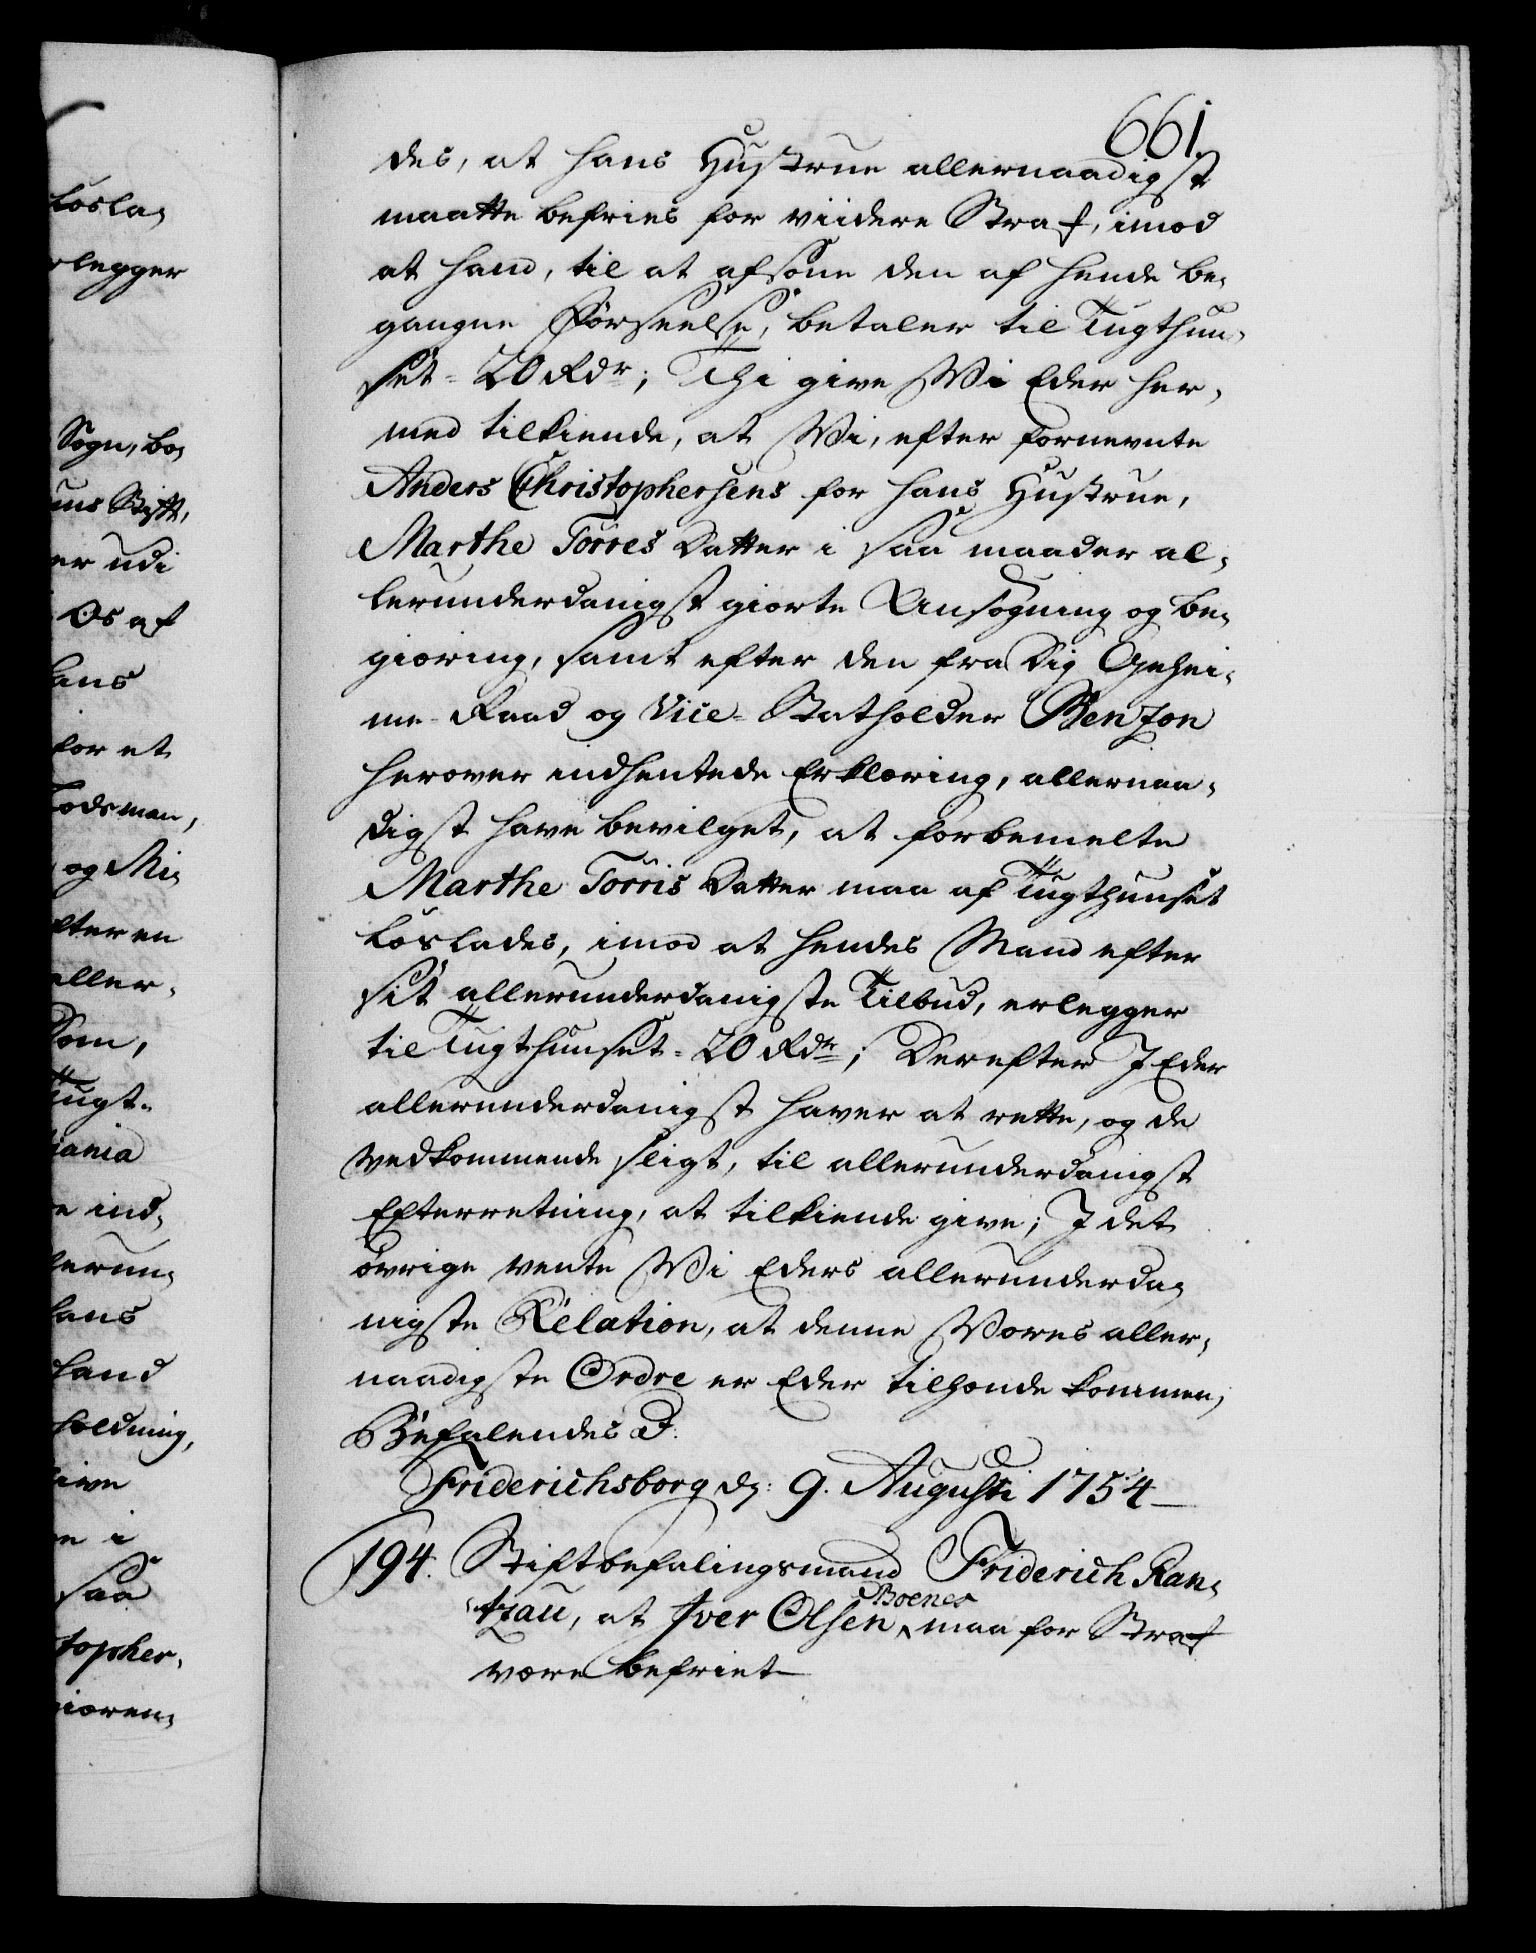 661.
des, at hans Hustrue allernaadigst
maatte befries for viidere Straf, imod
at hand, til at afsone den af hende be,
gangne Forseelse, betaler til Tugthuu,
set = 20 Rdr; Thi give Wi Eder her,
med tilkiende, at Wi, efter fornevnte
Anders Christophersens for hans Hustrue,
Marthe Torres Datter i saa maader al,
lerunderdanigst giorte Ansøgning og be,
giæring, samt efter den fra Dig Gehei,
me-Raad og Vice-Statholder Benzon
herover indhentede Erklæring, allernaa,
digst have bevilget, at forbemelte
Marthe Torris Datter maa af Tugthuuset
løslades, imod at hendes Mand efter
sit allerunderdanigste Tilbud, erlegger
til Tugthuuset = 20 Rdr; Derefter I Eder
allerunderdanigst haver at rette, og de
vedkommende sligt, til allerunderdanigst
Efterretning, at tilkiende give; I det
øvrige vente Wi Eders allerunderda,
nigste Relation, at denne Vores aller,
naadigste Ordre er Eder tilhænde kommen,
Befalendes D:
Friderichsborg d: 9. Augusti 1754
194. Stiftbefalingsmand Friderich Ran,
tzau, at Iver Olsen Boenes maa for Straf
være befriet
losla,
rlegger
Sogn, bo,
uus Stift,
er udi
Os af
hans
for et
Lodsman,
og Mi,
fter en
aller,
Dom,
Tugt,
tiania
e ind,
lerun,
hans
hand
holdning,
give
e i
saa
topher,
giæren,